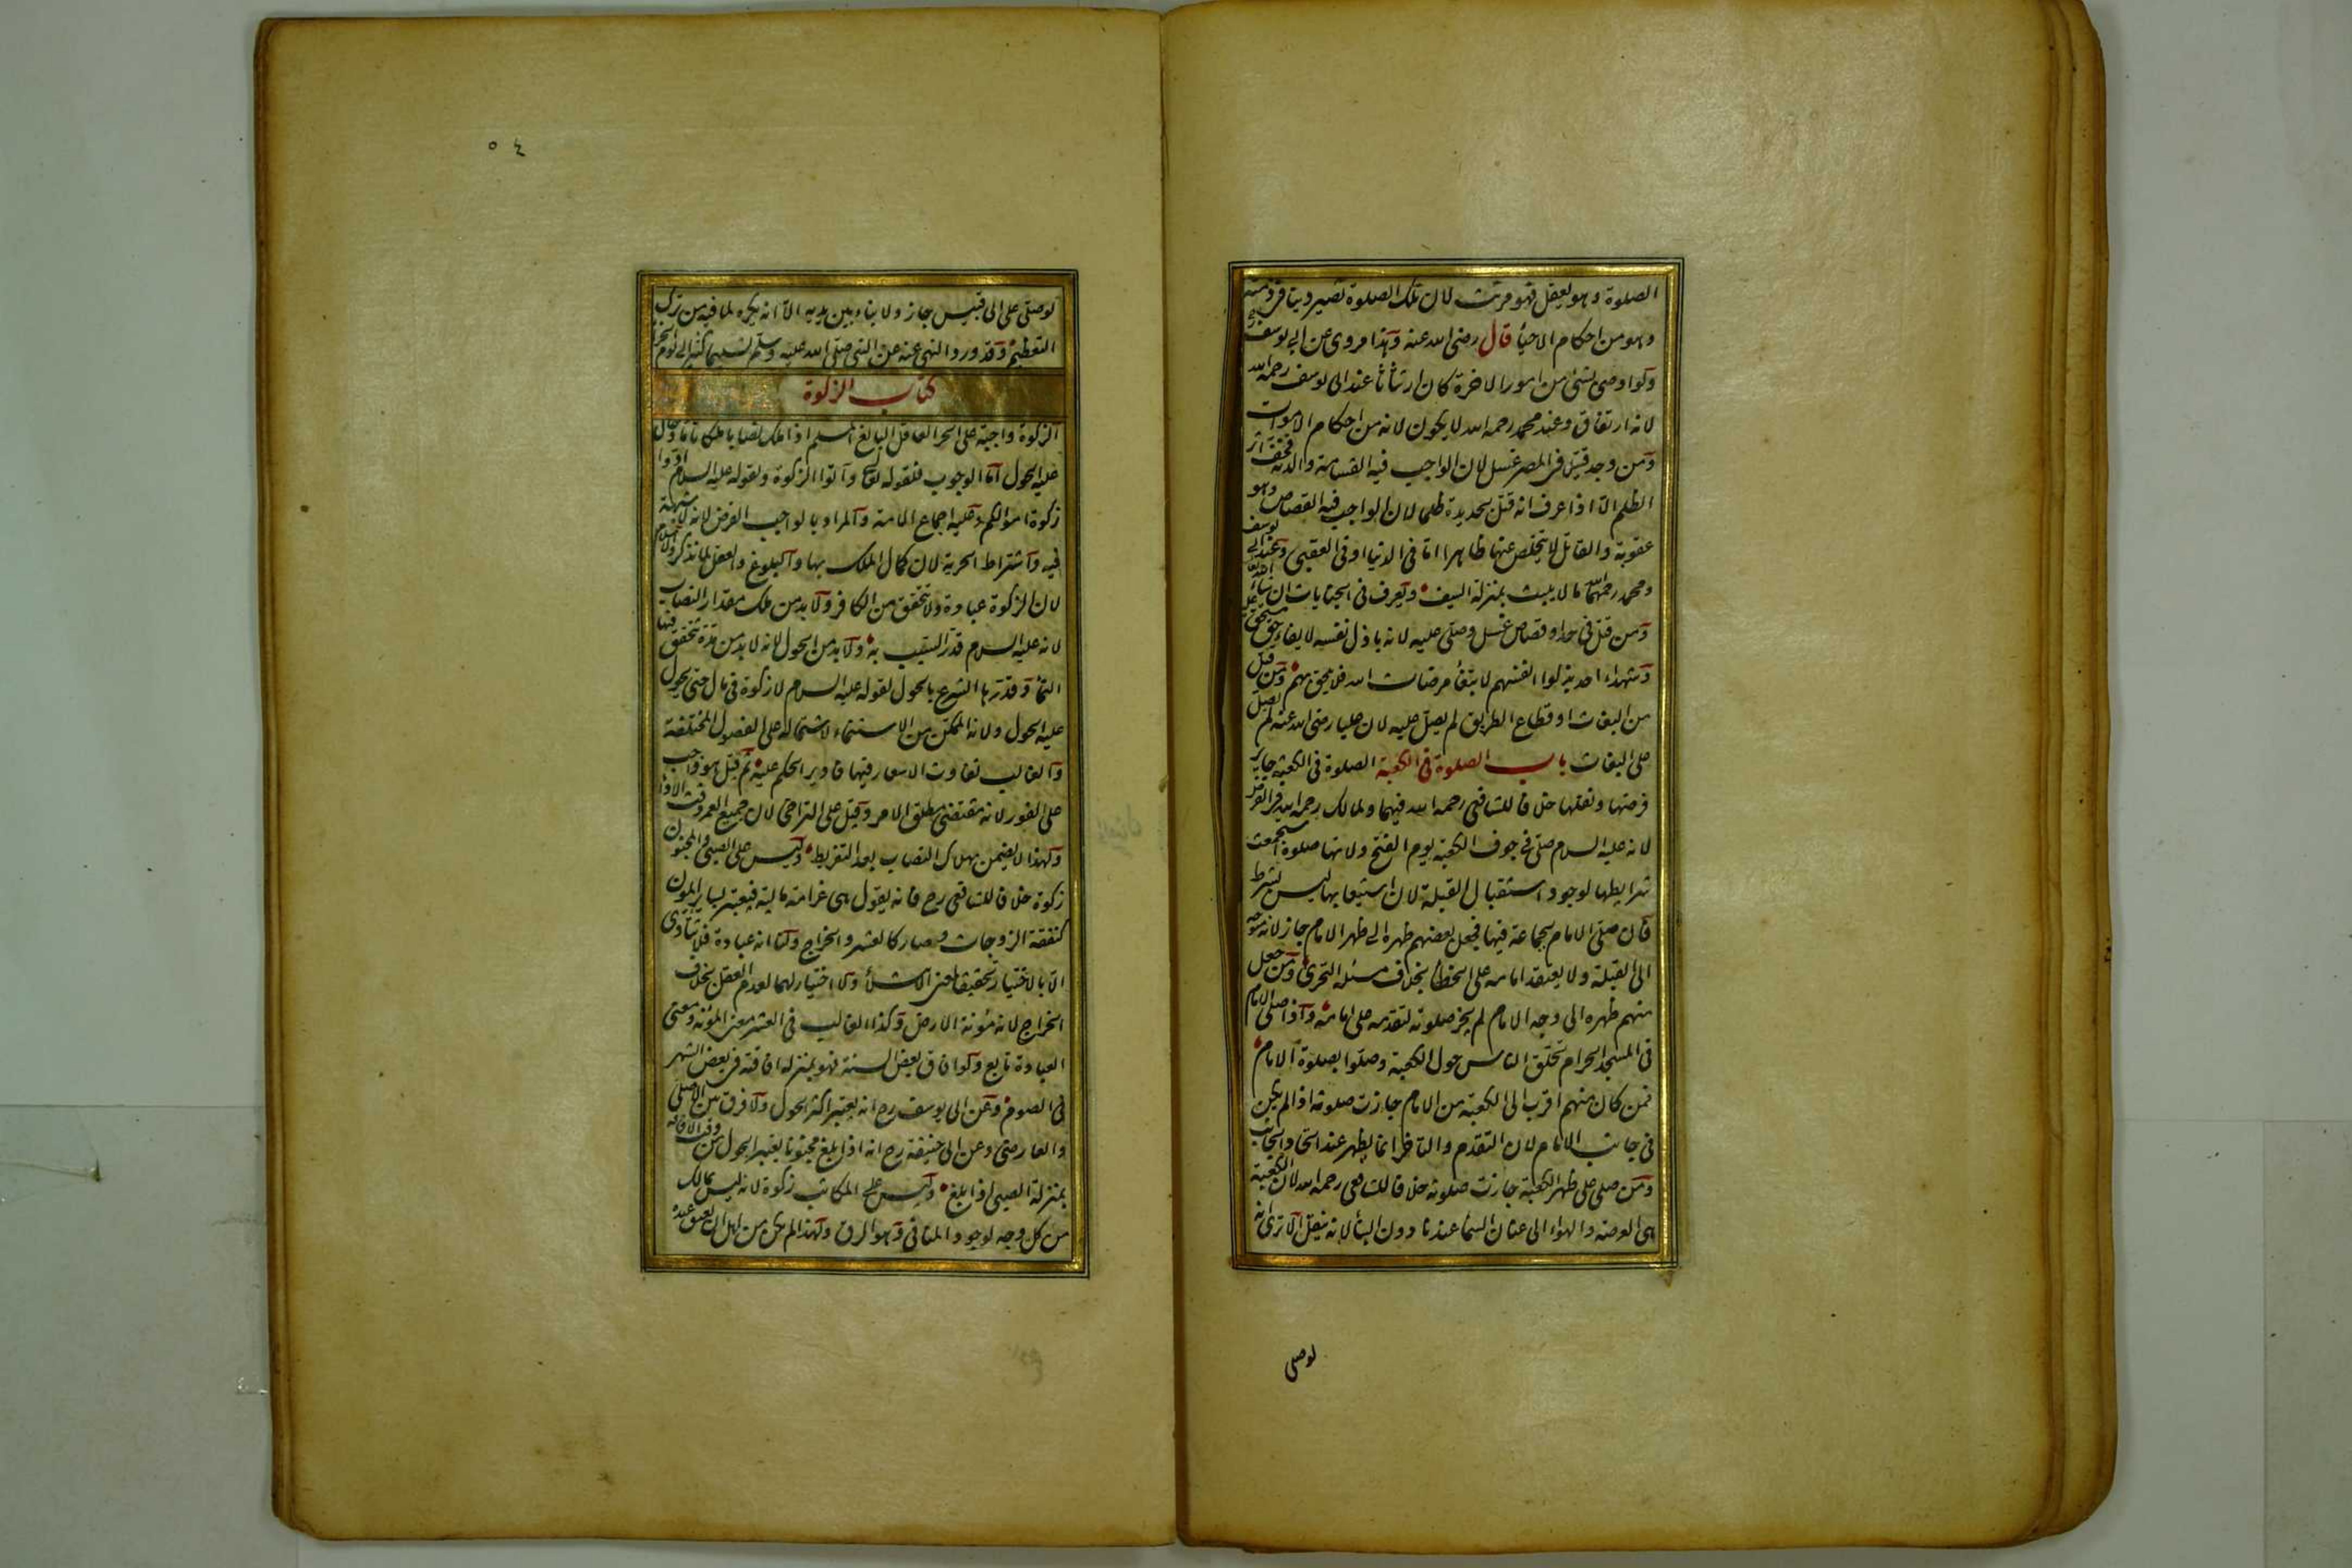 الصلوة وهو يعقل فهو مرتث لان تلك الصلوة تصير دينا فى ذمته
وهو من احكام الاحياء قال رضى الله عنه وهذا مروى عن ابى يوسف رح
ولو اوصى بشئ من امور الاخرة كان ارتثاثا عند ابى يوسف رحمه الله
لانه ارتفاق وعند محمد رحمه الله لا يكون لانه من احكام الاموات
ومن وجد قتيلا فى المصر غسل لان الواجب فيه القسامة والدية فخفف اثر
الظلم الا اذا عرف انه قتل بحديدة ظلما لان الواجب فيه القصاص وهو
عقوبة والقاتل لا يتخلص عنها ظاهرا اما فى الدنيا او فى العقبى وعند ابى يوسف
ومحمد رحمهما الله ما لا يلبث بمنزلة السيف ويعرف فى الجنايات ان شاء الله تعالى
ومن قتل فى حد او قصاص غسل وصلى عليه لانه باذل نفسه لايفاء حق مستحق عليه
وشهداء احد بذلوا انفسهم لابتغاء مرضات الله فلا يلحق بهم ومن قتل
من البغات او قطاع الطريق لم يصل عليه لان عليا رضى الله عنه لم يصل
على البغات باب الصلوة فى الكعبة الصلوة فى الكعبة جايزة
فرضها ونفلها خلافا للشافعى رحمه الله فيهما ولمالك رحمه الله فى الفرض
لانه عليه السلام صلى فى جوف الكعبة يوم الفتح ولانها صلوة استجمعت
شرايطها لوجود استقبال القبلة لان استيعابها ليس بشرط
فان صلى الامام بجماعة فيها فجعل بعضهم ظهره الى ظهر الامام جاز لانه متوجه
الى القبلة ولا يعتقد امامه على الخطأ بخلاف مسئلة التحرى ومن جعل
منهم ظهره الى وجه الامام لم يجز صلوته لتقدمه على امامه واذا صلى الامام
فى المسجد الحرام تحلق الناس حول الكعبة وصلوا بصلوة الامام
فمن كان منهم اقرب الى الكعبة من الامام جازت صلوته اذا لم يكن
فى جانب الامام لان التقدم والتاخر انما يظهر عند اتحاد الجانب
ومن صلى على ظهر الكعبة جازت صلوته خلافا للشافعى رحمه الله لان الكعبة
هى العرصة والهواء الى عنان السماء عندنا دون البناء لانه ينقل الا ترى انه
لوصلى
٥٤
لو صلى على ابى قبيس جاز ولا بناء بين يديه الا انه يكره لما فيه من ترك
التعظيم وقد ورد النهى عنه عن النبى صلى الله عليه وسلم تسليما كثيرا الى يوم
كتاب الزكوة
الزكوة واجبة على الحر العاقل البالغ المسلم اذا ملك نصابا ملكا تاما وحال
عليه الحول اما الوجوب فلقوله تعالى وآتوا الزكوة ولقوله عليه السلام ادوا
زكوة اموالكم وعليه اجماع الامة والمراد بالواجب الفرض لانه لا شبهة
فيه واشتراط الحرية لان كمال الملك بها والبلوغ والعقل لما نذكر والاسلام
لان الزكوة عبادة ولا تتحقق من الكافر ولا بد من ملك مقدار النصاب
لانه عليه السلام قدر السبب به ولا بد من الحول لانه لا بد من مدة يتحقق فيها
النماء وقدرها الشرع بالحول لقوله عليه السلام لا زكوة فى مال حتى يحول
عليه الحول ولانه الممكن من الاستنماء لاشتماله على الفصول المختلفة
والغالب تفاوت الاسعار فيها فادير الحكم عليه ثم قيل هو واجب
على الفور لانه مقتضى مطلق الامر وقيل على التراخى لان جميع العمر وقت الاداء
ولهذا لا يضمن بهلاك النصاب بعد التفريط وليس على الصبى والمجنون
زكوة خلافا للشافعى رح فانه يقول هى غرامة مالية فيعتبر بساير المون
كنفقة الزوجات وصار كالعشر والخراج ولنا انه عبادة فلا تتادى
الا بالاختيار تحقيقا لمعنى الابتلاء ولا اختيار لهما لعدم العقل بخلاف
الخراج لانه مؤنة الارض وكذا الغالب فى العشر معنى المؤنة ومعنى
العبادة تابع ولو افاق بعض السنة فهو بمنزلة افاقته فى بعض الشهر
فى الصوم وعن ابى يوسف رح انه يعتبر اكثر الحول ولا فرق بين الاصلى
والعارضى وعن ابى حنيفة رح انه اذا بلغ مجنونا يعتبر الحول من وقت الافاقة
بمنزلة الصبى اذا بلغ وليس على المكاتب زكوة لانه ليس بمالك
من كل وجه لوجود المنافى وهو الرق ولهذا لم يكن من اهل ان يعتق عبده